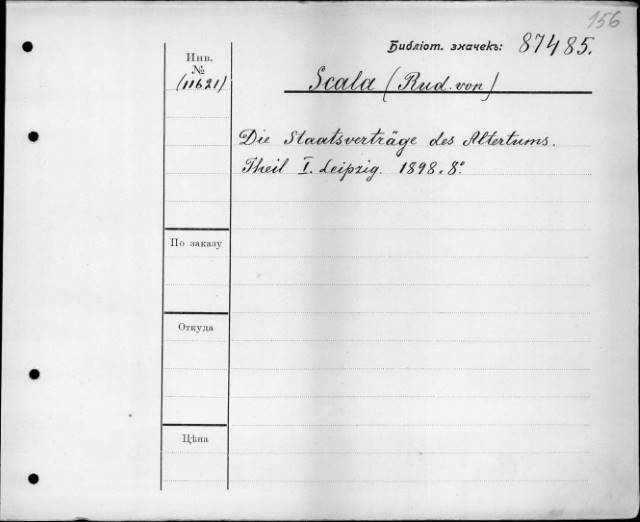 156
Библіот. значекъ: 87485.
Инв.
№
(11621)
Scala (Rud. von)
Die Staatsverträge des Altertums.
Theil I. Leipzig. 1898. 8°
По заказу
Откуда
Цѣна